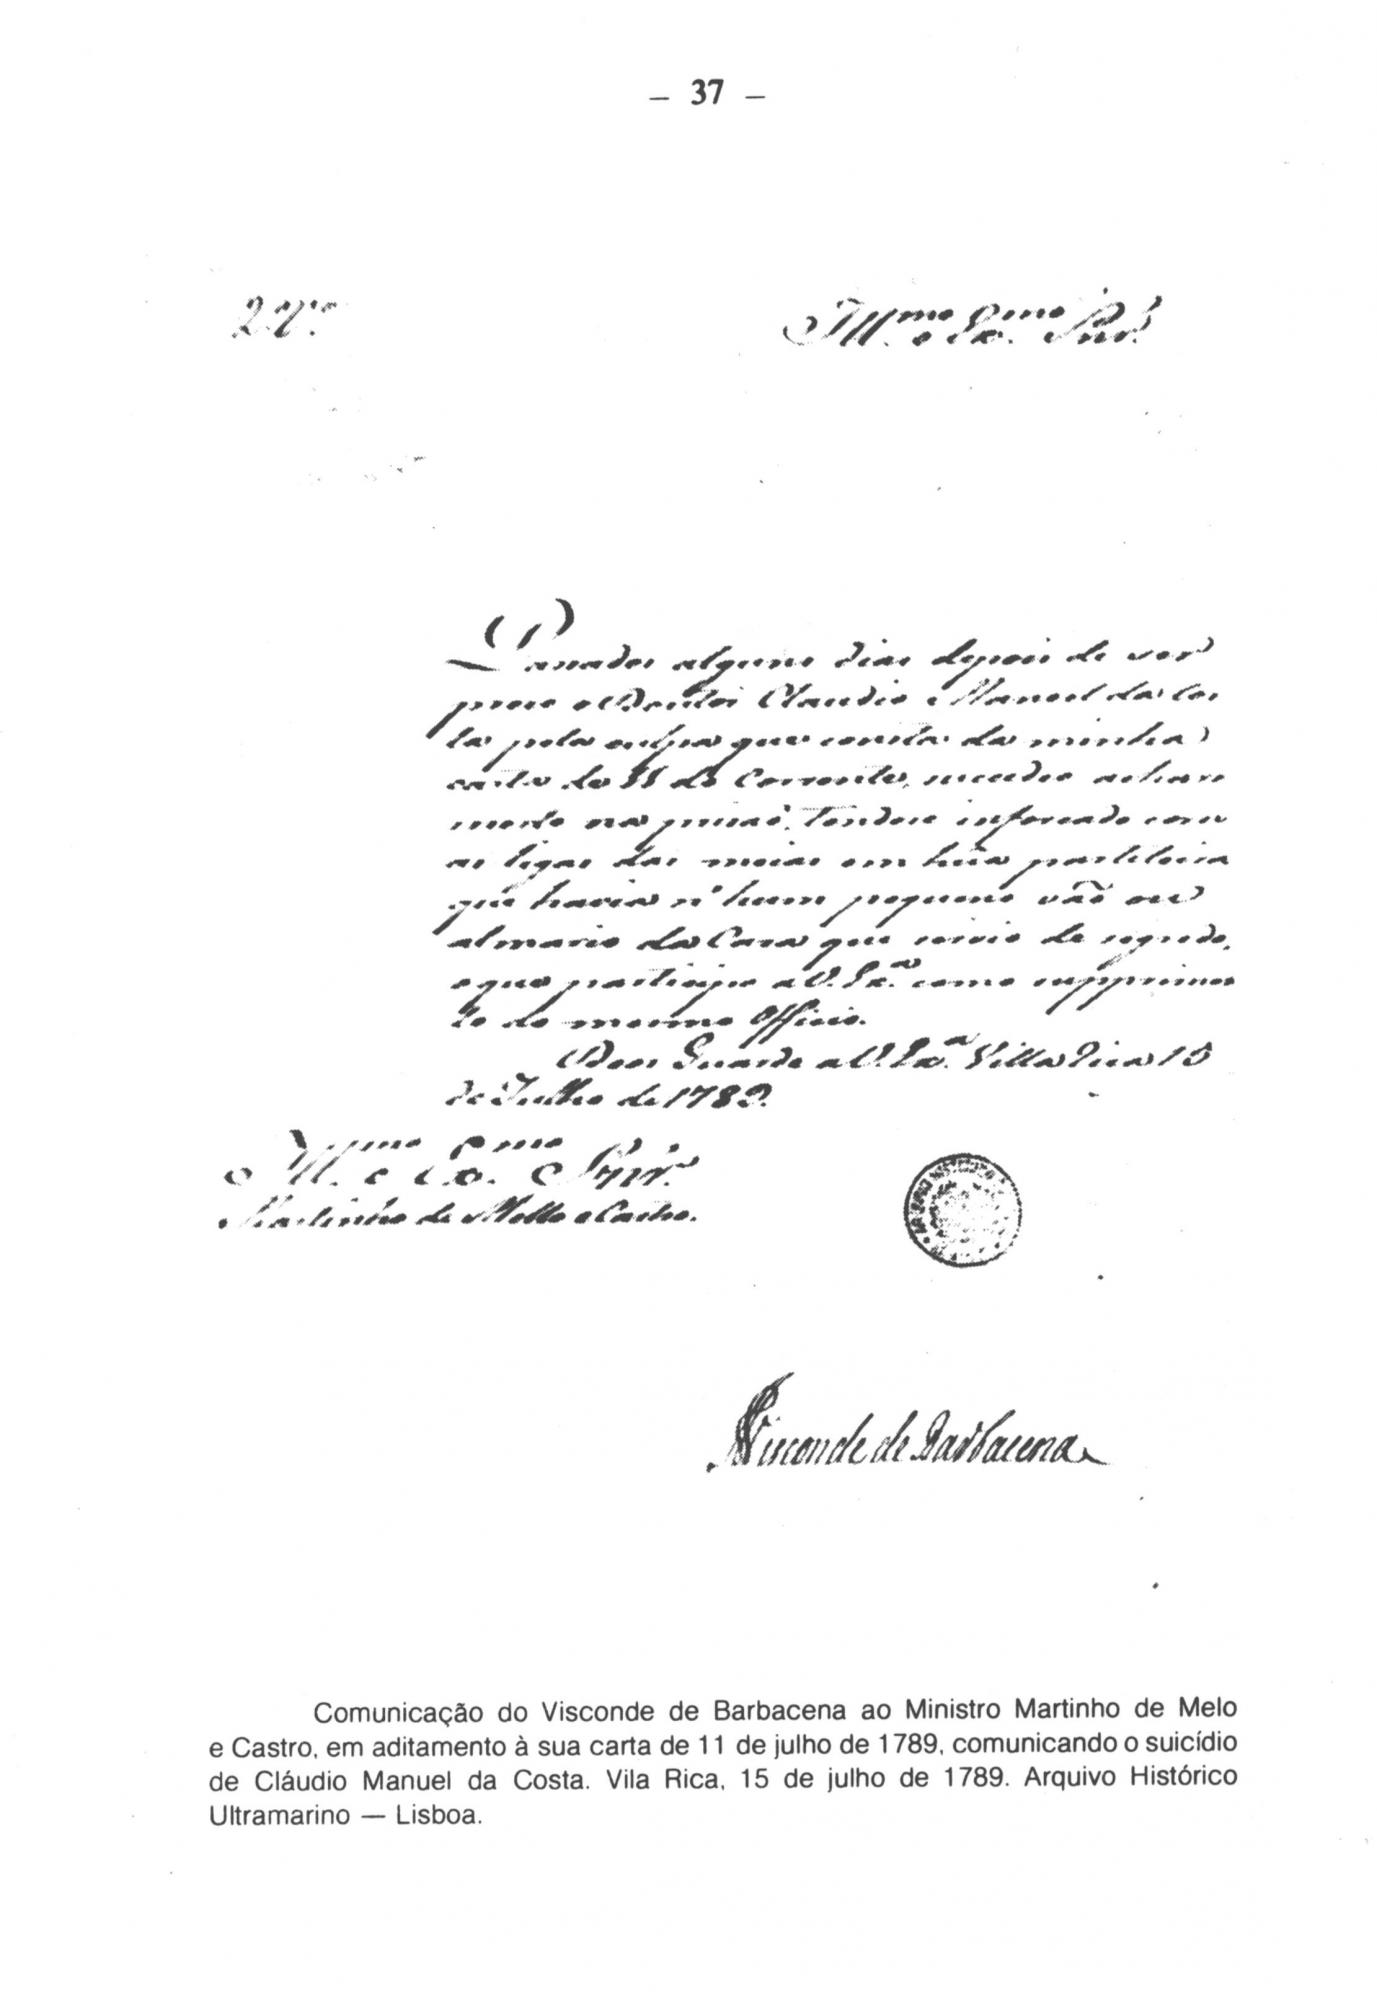 — 37 —
2.ª V.ª
Ill.mo e Ex.mo Snr.
Passados alguns dias depois de ser
prezo o Doutor Claudio Manoel da Cos-
ta pela culpa que consta da minha
carta de 11 do Corrente, succedeo achar-se
morto na prizaõ, tendose inforcado com
as ligas das meias em hũa partileira
que havia n'hum pequeno vaõ ou
almario da Caza que servio de segredo,
o que participo a V. Ex.ª como supprimen-
to do mesmo Officio.
Deos Guarde a V. Ex.ª Villa Rica 15
de Julho de 1789.
Ill.mo e Ex.mo Snr.
Martinho de Mello e Castro.
Visconde de Barbacena
Comunicação do Visconde de Barbacena ao Ministro Martinho de Melo
e Castro, em aditamento à sua carta de 11 de julho de 1789, comunicando o suicídio
de Cláudio Manuel da Costa. Vila Rica, 15 de julho de 1789. Arquivo Histórico
Ultramarino — Lisboa.